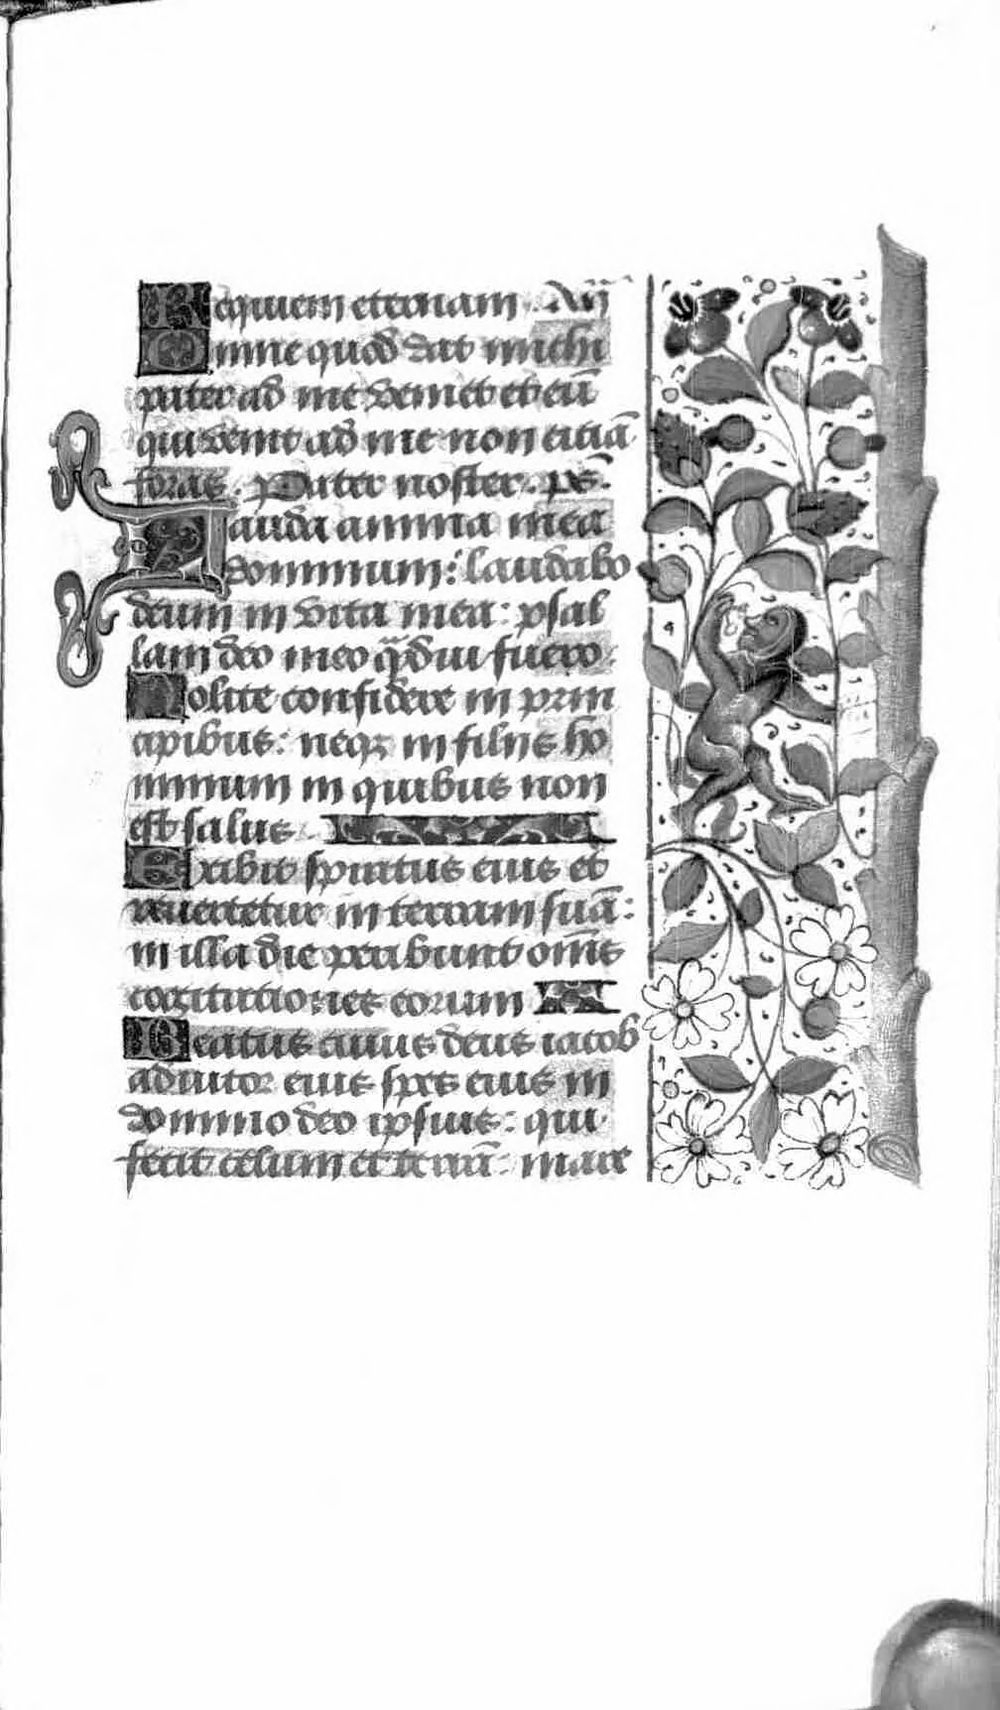 Requiem eternam. An̄
Omne quod dat michi
pater ad me veniet et eū
qui venit ad me non eiciā
foras. Pater noster. ps̄.
Lauda anima mea
dominum: laudabo
deum in vita mea: psal
lam deo meo q̄diu fuero.
Nolite confidere in prin
cipibus: neqꝫ in filiis ho
minum in quibus non
est salus.
Exibit spiritus eius et
revertetur in terram suā:
in illa die peribunt om̄s
cogitationes eorum
Beatus cuius deus iacob
adiutor eius spes eius in
domino deo ipsius: qui
fecit celum et terrā: mare